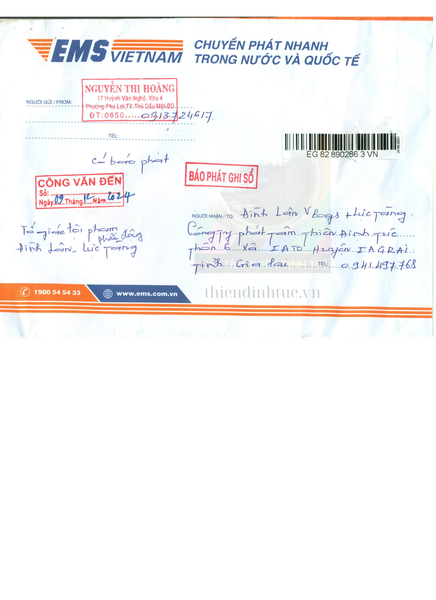 EMS VIETNAM
CHUYỂN PHÁT NHANH
TRONG NƯỚC VÀ QUỐC TẾ
NGƯỜI GỬI / FROM:
NGUYỄN THỊ HOÀNG
17 Huỳnh Văn Nghệ, Khu 4
Phường Phú Lợi,TX.Thủ Dầu Một-BD
ĐT:0650 0913.724617
TEL:
EG 82 890286 3 VN
có báo phát
BÁO PHÁT GHI SỐ
CÔNG VĂN ĐẾN
Số:
Ngày 09 Tháng Năm 2024
Tố giác tội phạm
phản động
Đình Lân - Lục Tang
NGƯỜI NHẬN / TO: Đình Lân Vlogs + Lục Tặng.
Công Ty phát tâm thiền Định tuệ
thôn 6 Xã IATO Huyện IAGRAI
Tỉnh Gia lai TEL: 0.941.497.768
1900 54 54 33
www.ems.com.vn
thiendinhtue.vn